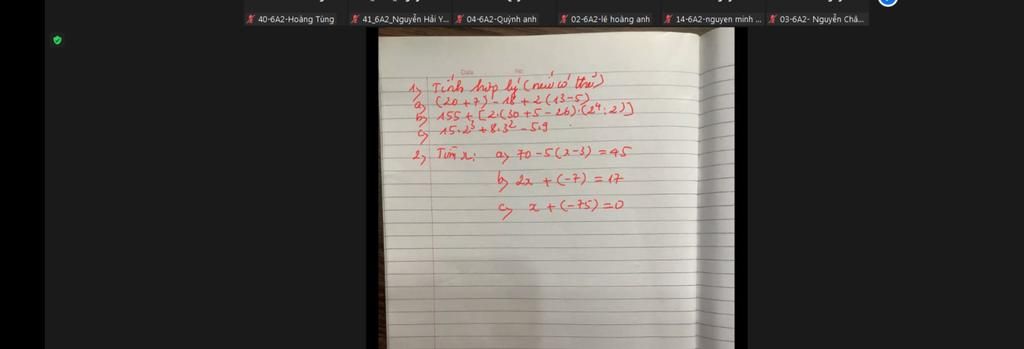 40-6A2-Hoàng Tùng
41_6A2_Nguyễn Hải Y...
04-6A2-Quỳnh anh
02-6A2-lê hoàng anh
14-6A2-nguyen minh ...
03-6A2- Nguyễn Châ...
Date No
1, Tính hợp lý (nếu có thể)
a, (20+7) - 18 + 2(13-5)
b, 155 + [2.(30+5-26).(2⁴:2)]
c, 15.2³ + 8.3² - 5.9
2, Tìm x: a, 70-5(x-3) = 45
b, 2x + (-7) = 17
c, x + (-75) = 0